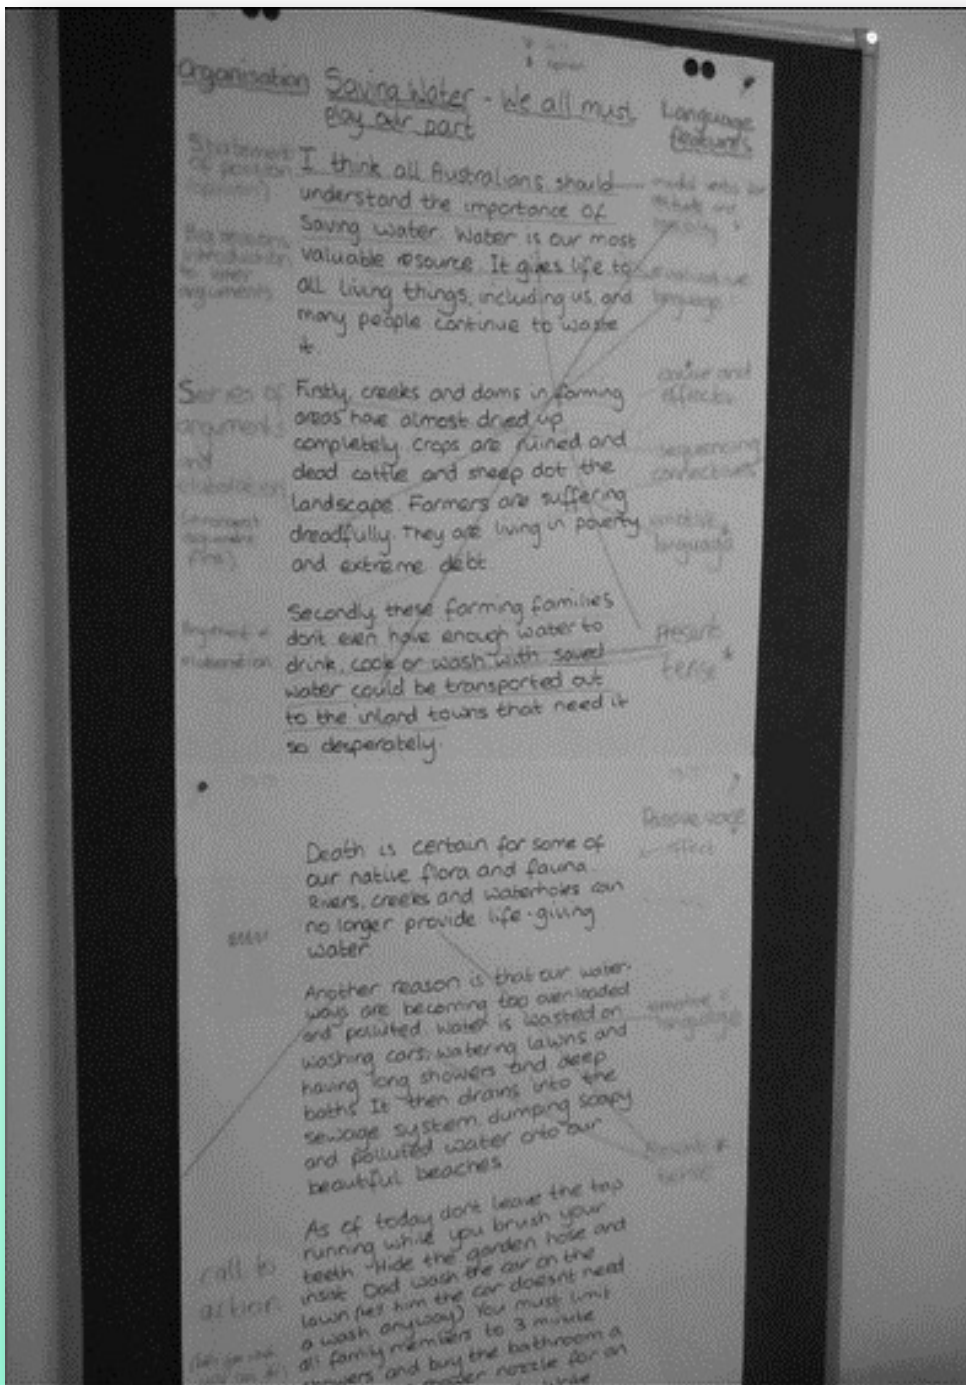 Organisation
Saving Water - We all must
play our part
Language
features
Statement
of position
(opinion)
I think all Australians should
understand the importance of
Saving water. Water is our most
valuable resource. It gives life to
all living things, including us, and
many people continue to waste
it.
introduction
to later
arguments
modal verbs
evaluative
language
Series of
arguments
and
elaboration
(strongest
argument
first)
Firstly, creeks and dams in farming
areas have almost dried up
completely. Crops are ruined and
dead cattle and sheep dot the
landscape. Farmers are suffering
dreadfully. They are living in poverty
and extreme debt.
cause and
effect
sequencing
connectives
emotive
language
Argument &
elaboration
Secondly, these farming families
don't even have enough water to
drink, cook or wash with saved
water could be transported out
to the inland towns that need it
so desperately.
Present
tense
Death is certain for some of
our native flora and fauna.
Rivers, creeks and waterholes can
no longer provide life-giving
water.
Passive voice
effect
Another reason is that our water-
ways are becoming too overloaded
and polluted. Water is wasted on
washing cars, watering lawns and
having long showers and deep
baths. It then drains into the
sewage system, dumping soapy
and polluted water onto our
beautiful beaches.
emotive
language
Present
tense
call to
action
As of today don't leave the tap
running while you brush your
teeth. Hide the garden hose and
insist Dad wash the car on the
lawn (tell him the car doesn't need
a wash anyway) You must limit
all family members to 3 minute
showers and buy the bathroom a
nozzle for an